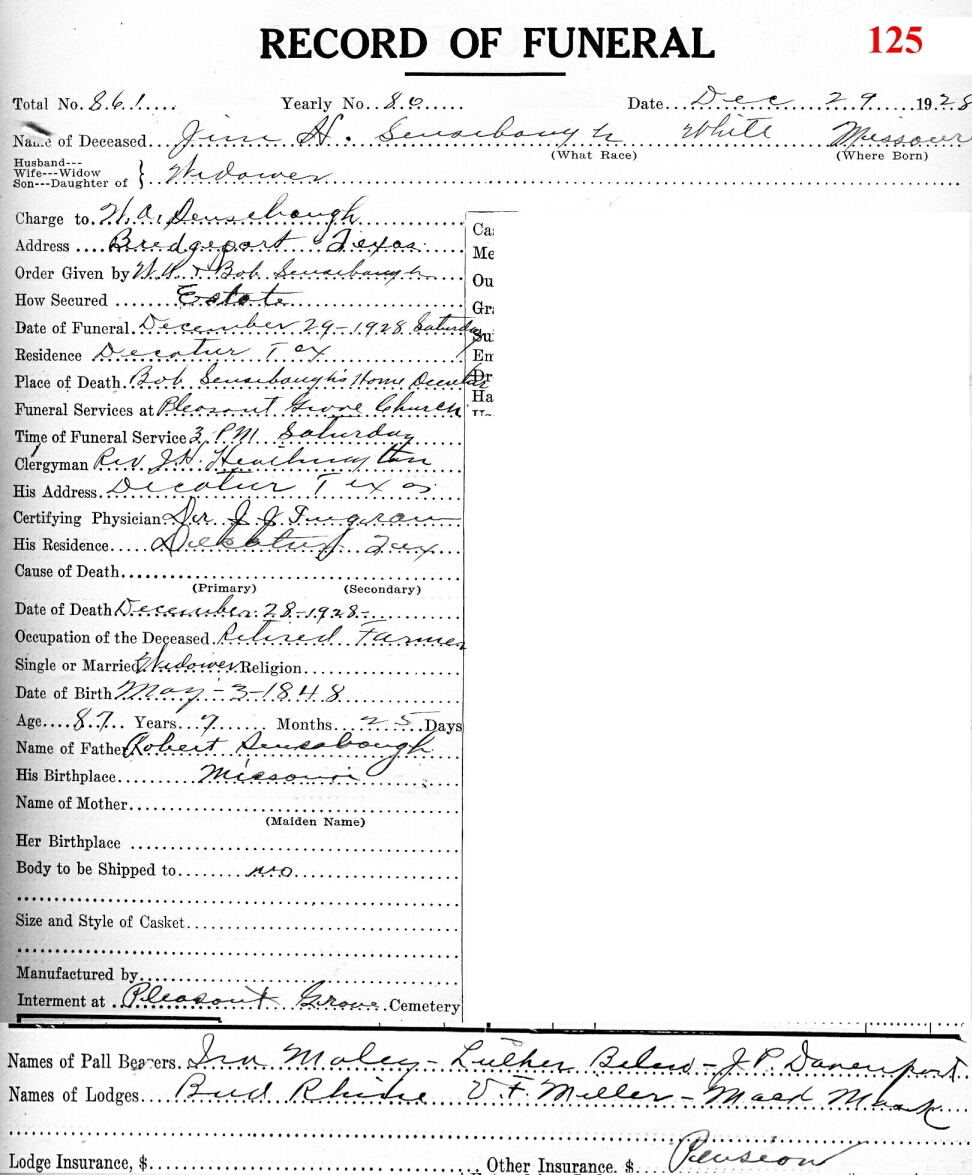 RECORD OF FUNERAL 125
Total No. 861 Yearly No. 80 Date Dec 29 1928
Name of Deceased Jim H. Sensibaugh White Missouri
(What Race) (Where Born)
Husband---
Wife---Widow
Son---Daughter of } Widower
Charge to W.A. Sensebough
Address Bredgeport Texas
Order Given by W.A. & Bob Sensibaugh
How Secured Estate
Date of Funeral December 29-1928 Saturday
Residence Decatur Tex
Place of Death Bob Sensibaugh's Home Decatur
Funeral Services at Pleasant Grove Church
Time of Funeral Service 3 P.M. Saturday
Clergyman Rev J.H.
His Address Decatur Texas
Certifying Physician Dr J J Ingram
His Residence Decatur Tex
Cause of Death
(Primary) (Secondary)
Date of Death December 28-1928-
Occupation of the Deceased Retired Farmer
Single or Married Widower Religion
Date of Birth May-3-1848
Age 87 Years 7 Months 25 Days
Name of Father Robert Sensabough
His Birthplace Missouri
Name of Mother
(Maiden Name)
Her Birthplace
Body to be Shipped to no
Size and Style of Casket
Manufactured by
Interment at Pleasant Grove Cemetery
Ca
Me
Ou
Gra
Su
Em
Dr
Ha
Names of Pall Bearers. Ira Moley - Luther Belew - J.P. Davenport
Names of Lodges Bud Rhine V.F. Miller -
Lodge Insurance, $ Other Insurance. $ Pension